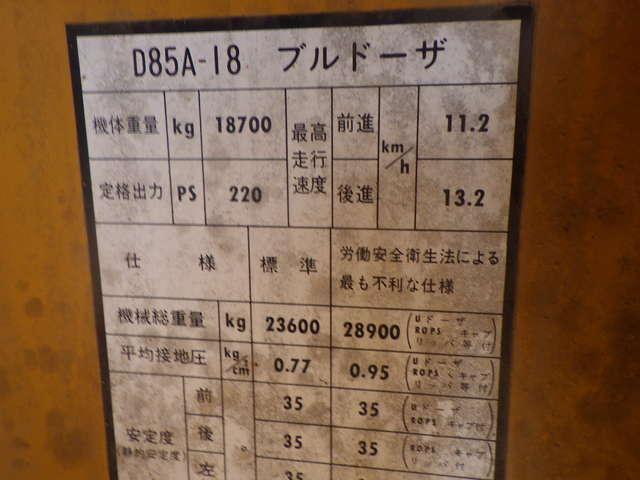 D85A-18 ブルドーザ
機体重量 kg 18700 最高走行速度 前進 km/h 11.2
定格出力 PS 220 後進 13.2
仕様 標準 労働安全衛生法による
最も不利な仕様
機械総重量 kg 23600 28900 (Uドーザ
ROPS キャブ
リッパ等付)
平均接地圧 kg/cm 0.77 0.95 (Uドーザ
ROPS キャブ
リッパ等付)
安定度
(静的安定度)
前 35 35 (Uドーザ
ROPS キャブ付)
後 ° 35 35 (ROPS キャブ
リッパ付)
左 35